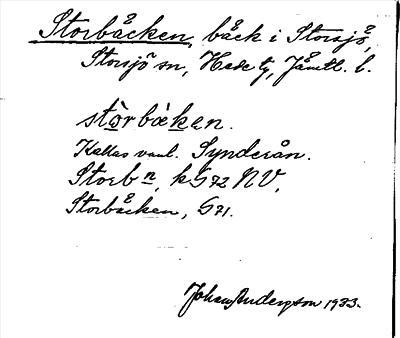 Storbäcken, bäck i Storsjö,
Storsjö sn, Hede tg, Jämtl. l.
stòrbäken.
Kallas vanl. Synderån.
Storbn, k G72 NV,
Storbäcken, G71.
Johan Anderson 1933.